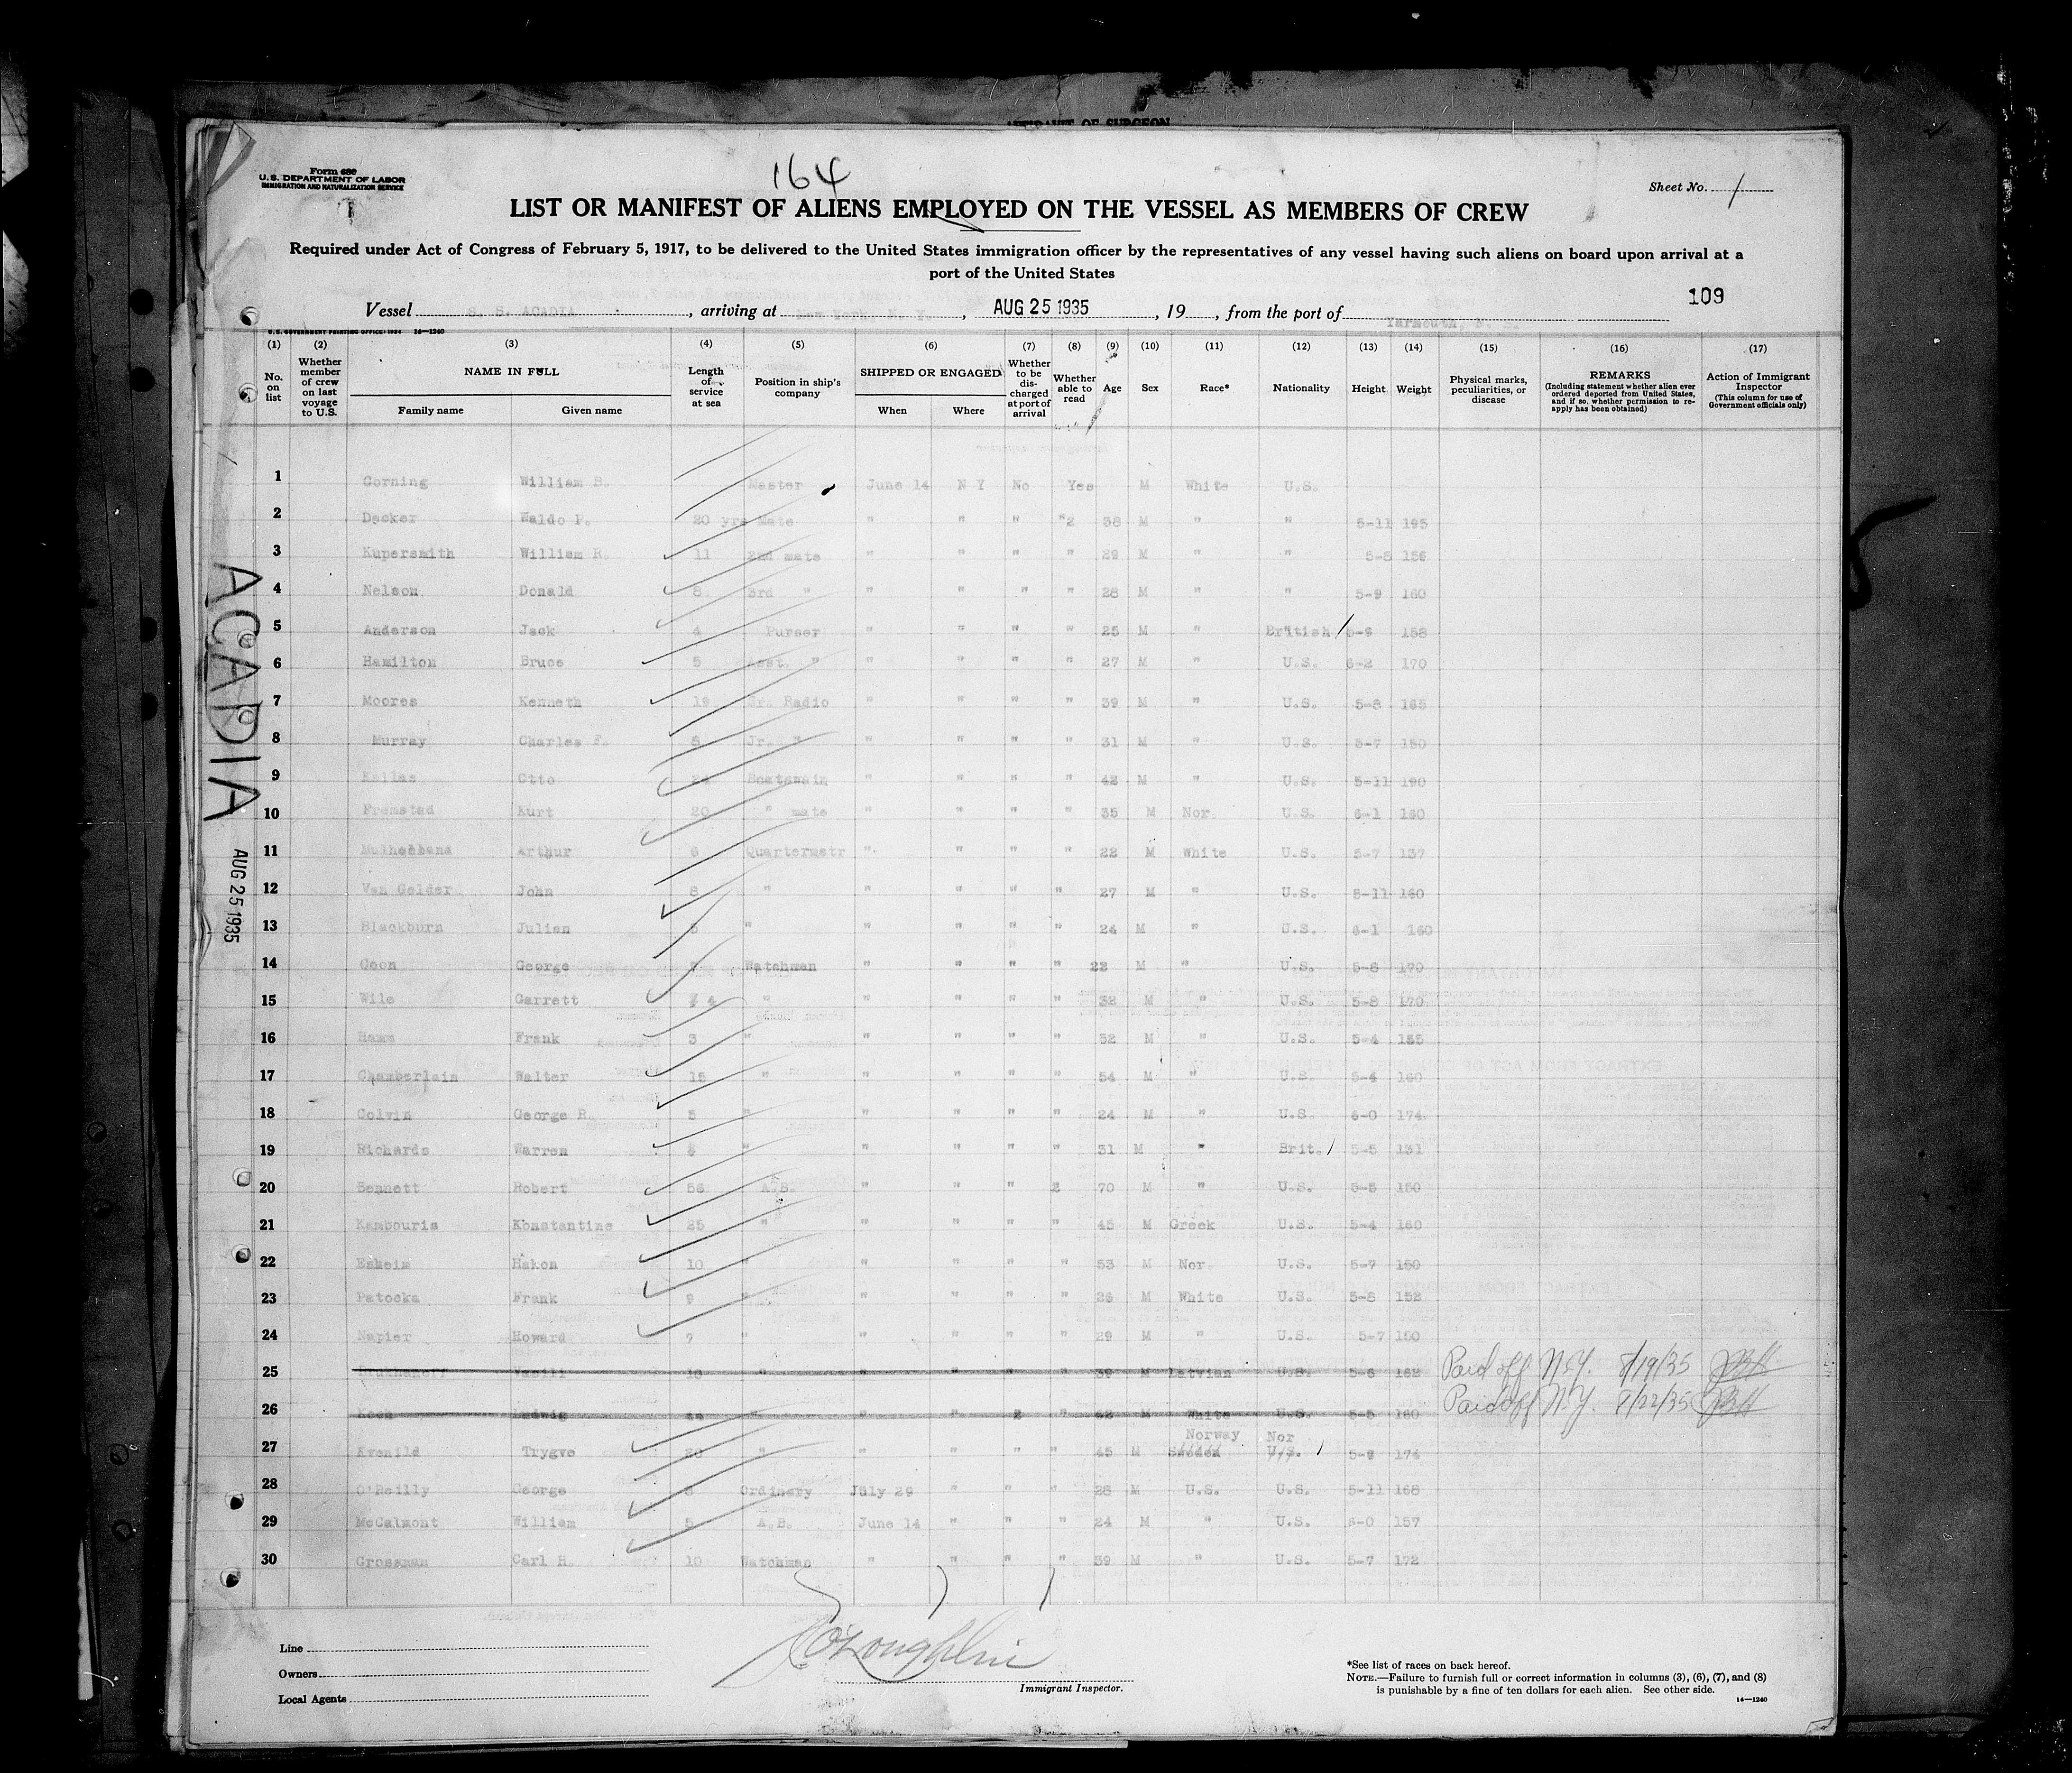 AFFIDAVIT OF SURGEON
Form 680
U.S. DEPARTMENT OF LABOR
IMMIGRATION AND NATURALIZATION SERVICE
164
Sheet No. 1
LIST OR MANIFEST OF ALIENS EMPLOYED ON THE VESSEL AS MEMBERS OF CREW
Required under Act of Congress of February 5, 1917, to be delivered to the United States immigration officer by the representatives of any vessel having such aliens on board upon arrival at a
port of the United States
109
Vessel S. S. ACADIA, arriving at New York, N. Y., AUG 25 1935, 19, from the port of Yarmouth, N. S.
U.S. GOVERNMENT PRINTING OFFICE: 1934 14—1240
(1) (2) (3) (4) (5) (6) (7) (8) (9) (10) (11) (12) (13) (14) (15) (16) (17)
No. on list Whether member of crew on last voyage to U.S. NAME IN FULL Family name Given name Length of service at sea Position in ship's company SHIPPED OR ENGAGED When Where Whether to be discharged at port of arrival Whether able to read Age Sex Race* Nationality Height Weight Physical marks, peculiarities, or disease REMARKS (Including statement whether alien ever ordered deported from United States, and if so, whether permission to reapply has been obtained) Action of Immigrant Inspector (This column for use of Government officials only)
1 Corning William B. Master June 14 N Y No Yes M White U.S.
2 Decker Waldo P. 20 yrs Mate " " " "2 38 M " " 5-11 195
3 Kupersmith William R. 11 2nd mate " " " " 29 M " " 5-8 156
4 Nelson Donald 8 3rd " " " " " 28 M " " 5-9 160
5 Anderson Jack 4 Purser " " " " 25 M " British 5-9 158
6 Hamilton Bruce 5 Asst. " " " " " 27 M " U.S. 6-2 170
7 Moores Kenneth 19 Sr. Radio " " " " 39 M " U.S. 5-8 165
8 Murray Charles F. 5 Jr. " " " " " 31 M " U.S. 5-7 150
9 Kallas Otto 24 Boatswain " " " " 42 M " U.S. 5-11 190
10 Fremstad Kurt 20 " mate " " " " 35 M Nor. U.S. 6-1 160
11 Arthur 6 Quartermstr " " " " 22 M White U.S. 5-7 137
12 Van Gelder John 8 " " " " " 27 M " U.S. 5-11 160
13 Blackburn Julian 5 " " " " " 24 M " U.S. 6-1 160
14 Coon George Watchman " " " " 22 M " U.S. 5-8 170
15 Wile Garrett 4 " " " " " 32 M " U.S. 5-8 170
16 Hams Frank 3 " " " " " 52 M " U.S. 5-4 155
17 Chamberlain Walter 15 " " " " " 54 M " U.S. 5-4 160
18 Colvin George R. 5 " " " " " 24 M " U.S. 6-0 174
19 Richards Warren " " " " " 31 M " Brit. 5-5 131
20 Bennett Robert 56 A.B. " " " 2 70 M " U.S. 5-5 150
21 Kambouris Konstantine 25 " " " " " 45 M Greek U.S. 5-4 160
22 Esheim Hakon 10 " " " " " 53 M Nor. U.S. 5-7 150
23 Patocka Frank 9 " " " " " 26 M White U.S. 5-8 152
24 Napier Howard 7 " " " " " 29 M " U.S. 5-7 150
25 Vasili 10 " " " " " 39 M Latvian U.S. 5-6 162 Paid off N.Y. 8/19/35
26 Koch Ludwig 44 " " " 2 " 42 M White U.S. 5-5 160 Paid off N.Y. 8/22/35
Norway Nor
27 Evenild Trygve 20 " " " " " 45 M Sweden U.S. 5-9 174
28 O'Reilly George Ordinary July 29 " " " 28 M U.S. U.S. 5-11 168
29 McCalmont William 5 A.B. June 14 " " " 24 M " U.S. 6-0 157
30 Grossman Carl H. 10 Watchman " " " " 39 M " U.S. 5-7 172
ACADIA
AUG 25 1935
Line
Owners
Local Agents
O'Loughlin
Immigrant Inspector.
*See list of races on back hereof.
NOTE.—Failure to furnish full or correct information in columns (3), (6), (7), and (8)
is punishable by a fine of ten dollars for each alien. See other side.
14—1240